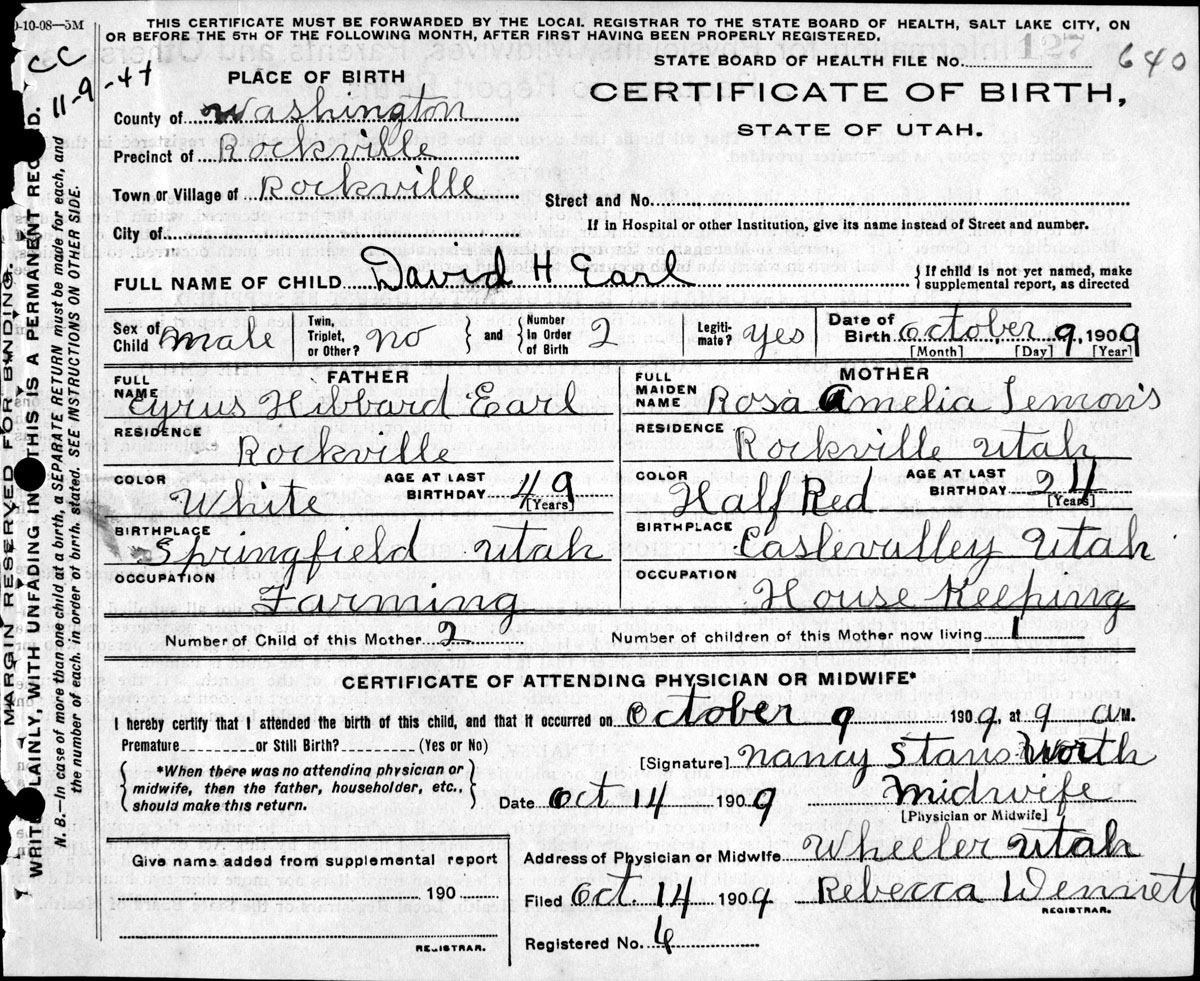 0-10-08—5M
THIS CERTIFICATE MUST BE FORWARDED BY THE LOCAL REGISTRAR TO THE STATE BOARD OF HEALTH, SALT LAKE CITY, ON
OR BEFORE THE 5TH OF THE FOLLOWING MONTH, AFTER FIRST HAVING BEEN PROPERLY REGISTERED.
CC
11-9-44
STATE BOARD OF HEALTH FILE No. 197 640
PLACE OF BIRTH
CERTIFICATE OF BIRTH,
STATE OF UTAH.
County of Washington
Precinct of Rockville
Town or Village of Rockville
Street and No.
City of
If in Hospital or other Institution, give its name instead of Street and number.
FULL NAME OF CHILD David H Earl { If child is not yet named, make
supplemental report, as directed
Sex of Child male Twin, Triplet, or Other? no } and { Number In Order of Birth 2 Legitimate? yes Date of Birth October 9, 1909
[Month] [Day] [Year]
FATHER
FULL NAME Cyrus Hibbard Earl
RESIDENCE Rockville
COLOR White AGE AT LAST BIRTHDAY 49 [Years]
BIRTHPLACE Springfield Utah
OCCUPATION Farming
MOTHER
FULL MAIDEN NAME Rosa Amelia Lemon's
RESIDENCE Rockville Utah
COLOR Half Red AGE AT LAST BIRTHDAY 24 [Years]
BIRTHPLACE Caslevalley Utah
OCCUPATION House Keeping
Number of Child of this Mother 2 Number of children of this Mother now living 1
CERTIFICATE OF ATTENDING PHYSICIAN OR MIDWIFE*
I hereby certify that I attended the birth of this child, and that it occurred on October 9 1909, at 9 a M.
Premature or Still Birth? (Yes or No)
[Signature] Nancy Stansworth
{ *When there was no attending physician or
midwife, then the father, householder, etc.,
should make this return. }
Date Oct 14 1909 Midwife
[Physician or Midwife]
Give name added from supplemental report
190
REGISTRAR.
Address of Physician or Midwife Wheeler Utah
Filed Oct. 14 1909 Rebecca Dennett
REGISTRAR.
Registered No. 6
MARGIN RESERVED FOR BINDING.
WRITE PLAINLY, WITH UNFADING INK THIS IS A PERMANENT RECORD.
N. B.—In case of more than one child at a birth, a SEPARATE RETURN must be made for each, and
the number of each, in order of birth, stated. SEE INSTRUCTIONS ON OTHER SIDE.